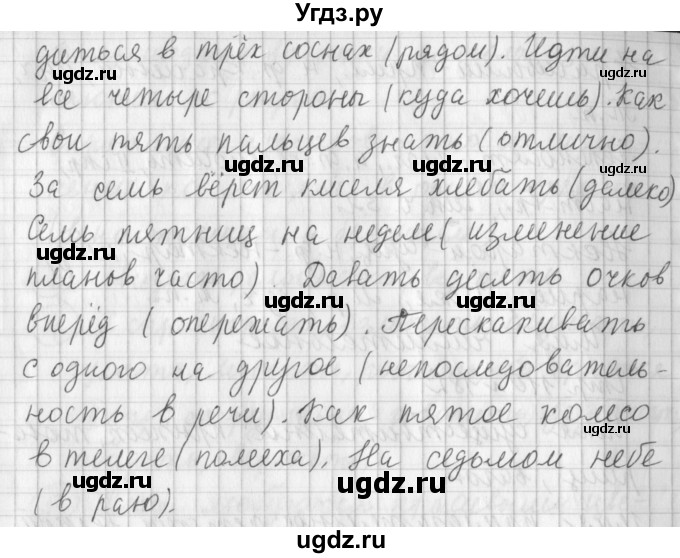 Угдз.ру
диться в трёх соснах (рядом). Идти на
все четыре стороны (куда хочешь). Как
свои пять пальцев знать (отлично).
За семь вёрст киселя хлебать (далеко)
Семь пятниц на неделе (изменение
планов часто). Давать десять очков
вперёд (опережать). Перескакивать
с одного на другое (непоследователь-
ность в речи). Как пятое колесо
в телеге (помеха). На седьмом небе
(в раю).
ugdz.ru
ugdz.ru
ugdz.ru
ugdz.ru
ugdz.ru
ugdz.ru
ugdz.ru
ugdz.ru
ugdz.ru
ugdz.ru
ugdz.ru
ugdz.ru
ugdz.ru